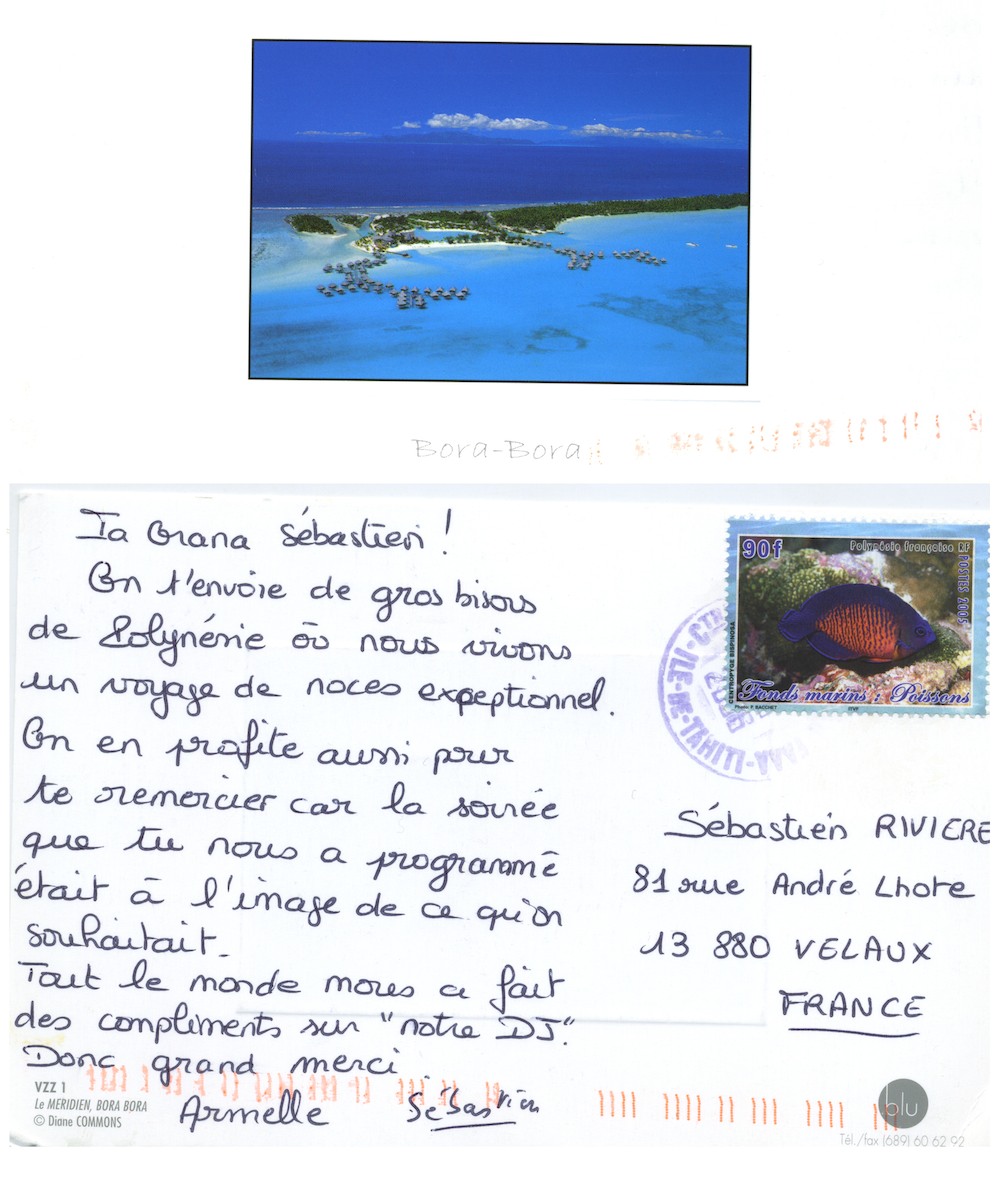 Bora-Bora
Ia Orana Sébastien !
On t'envoie de gros bisous
de Polynésie où nous vivons
un voyage de noces exceptionnel.
On en profite aussi pour
te remercier car la soirée
que tu nous a programmé
était à l'image de ce qu'on
souhaitait.
Tout le monde nous a fait
des compliments sur "notre DJ".
Donc grand merci
Armelle Sébastien
VZZ 1
Le MERIDIEN, BORA BORA
© Diane COMMONS
90f
Polynésie française RF
POSTES 2005
CENTROPYGE BISPINOSA
Fonds marins : Poissons
Photo: P. BACCHET
ITVF
ILE-DE-TAHITI
Sébastien RIVIERE
81 rue André Lhote
13 880 VELAUX
FRANCE
blu
Tél./fax (689) 60 62 92